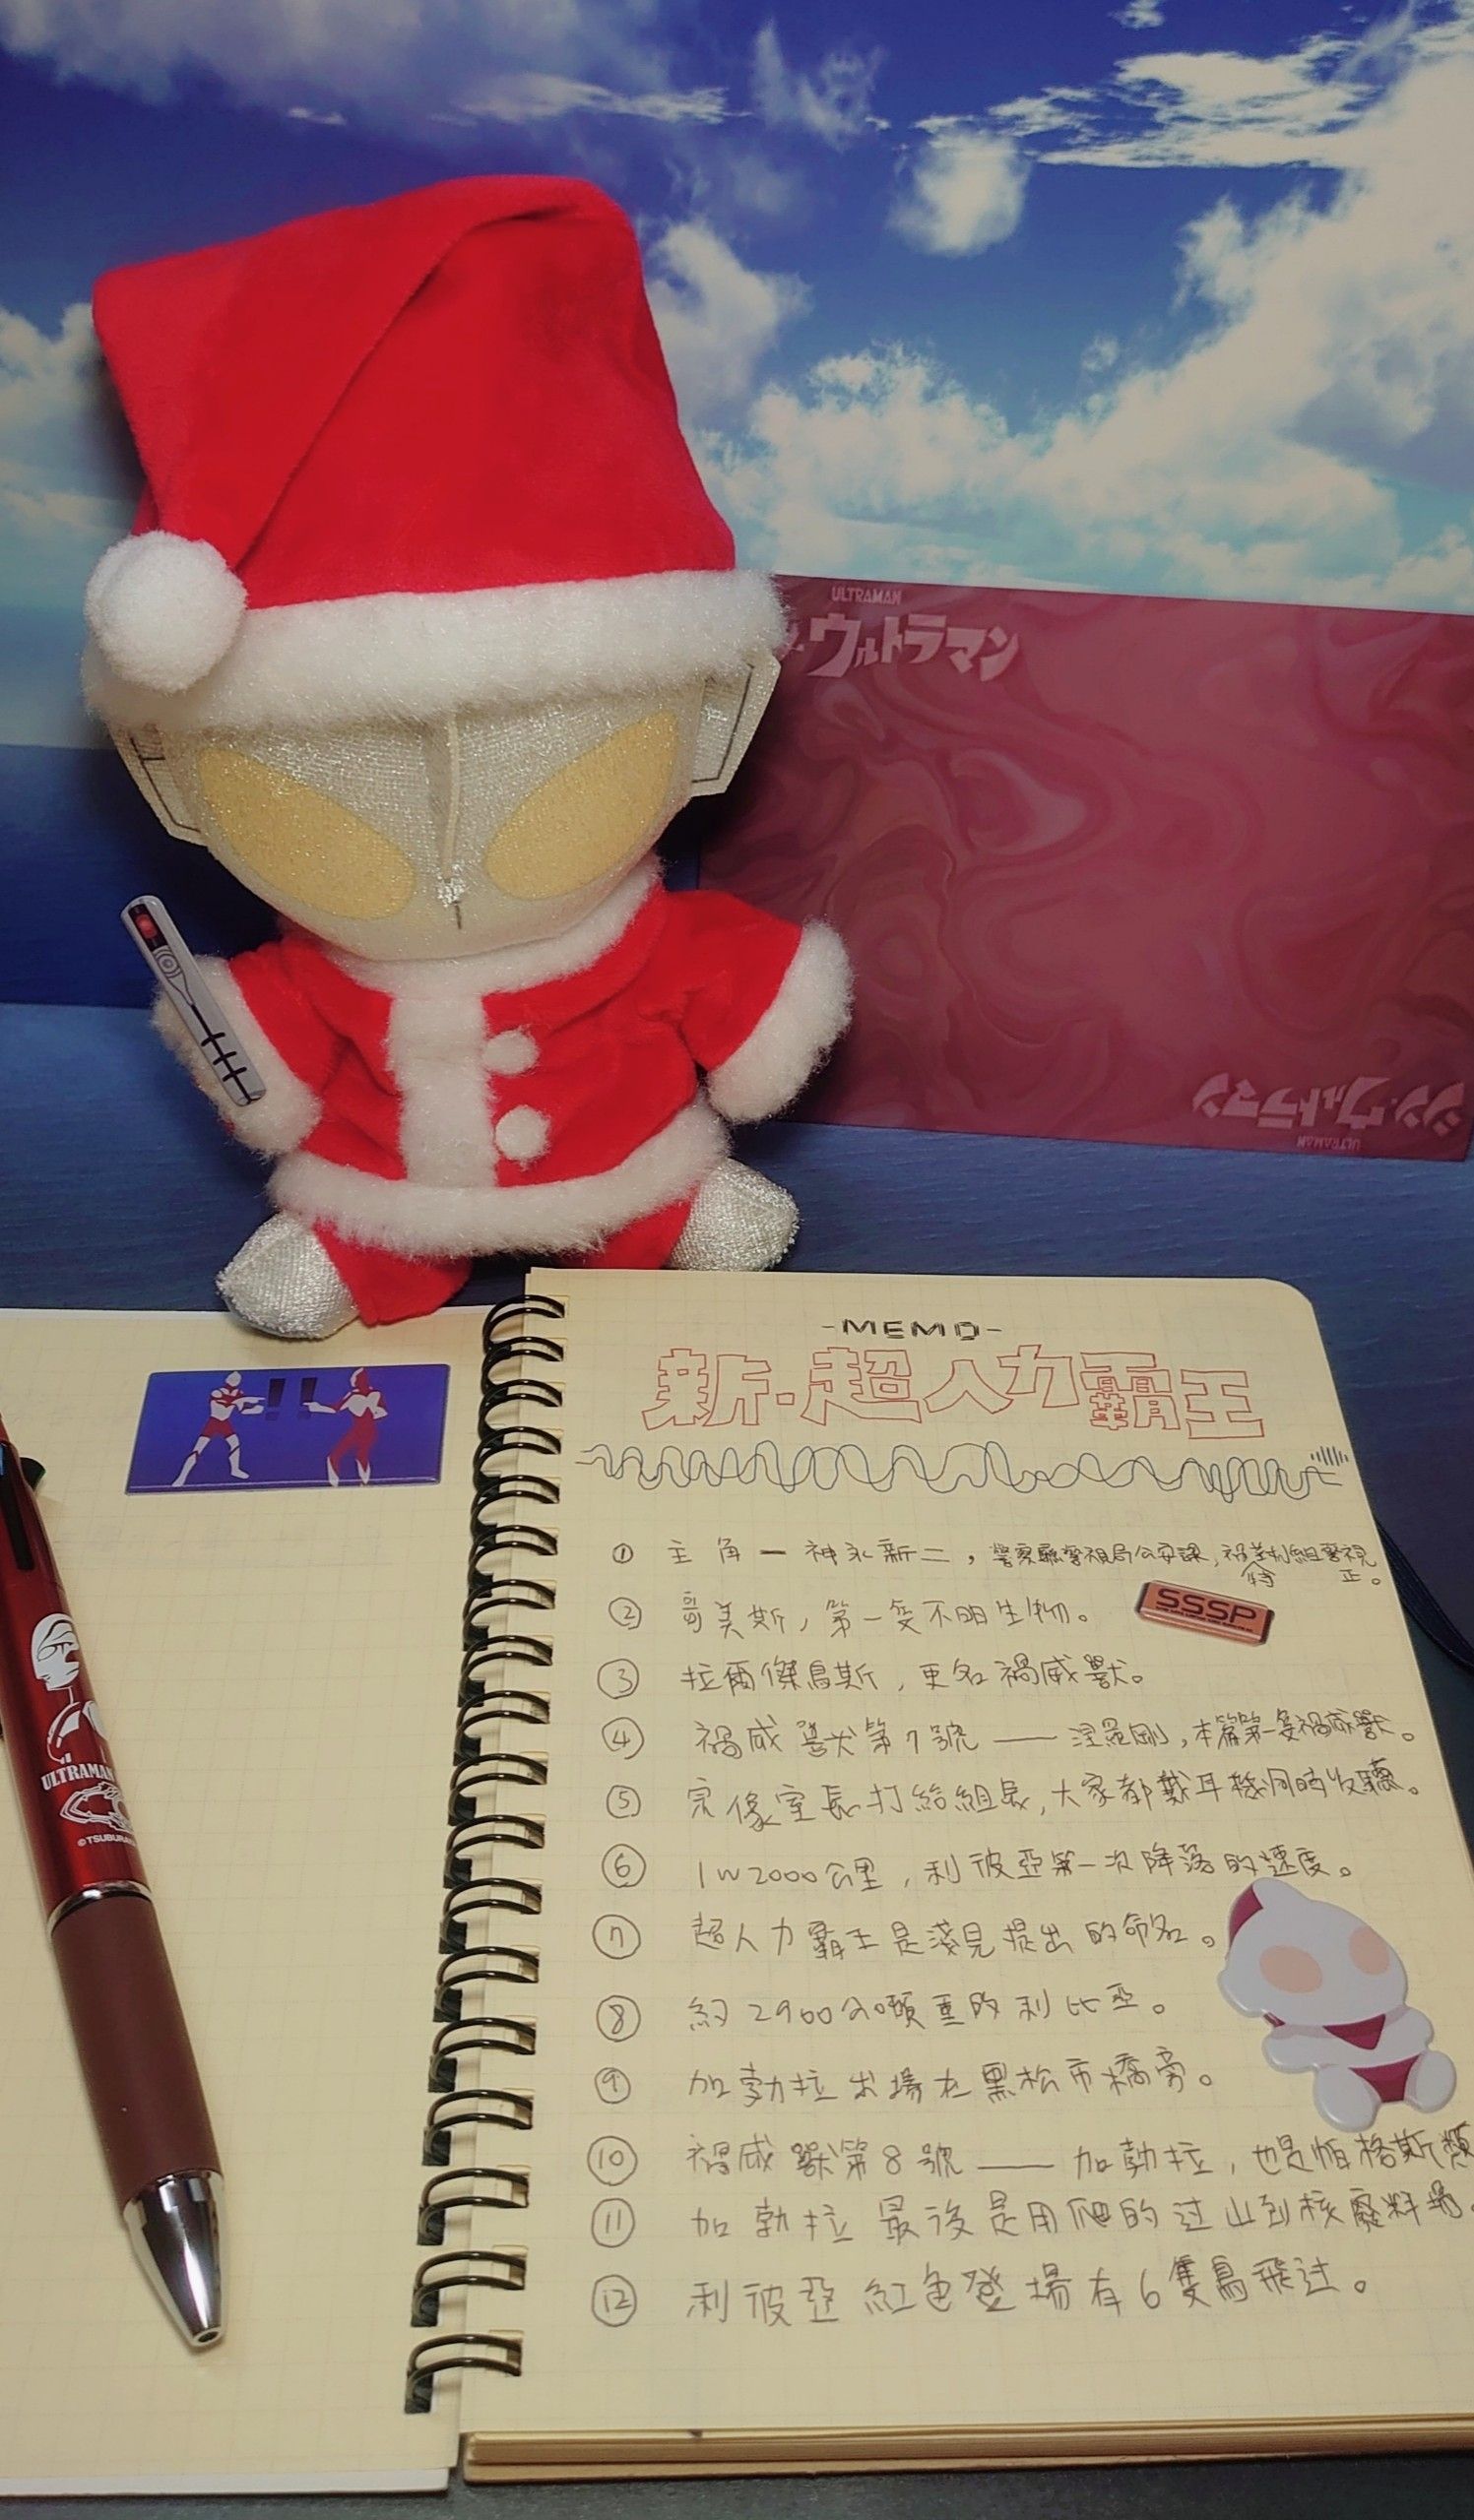 ULTRAMAN
ウルトラマン
シン・ウルトラマン
ULTRAMAN
-MEMO-
新.超人力霸王
① 主角一神永新二，警察廳警視局公安課，禍特對組警視正。
SSSP
② 哥美斯，第一隻不明生物。
③ 拉爾傑烏斯，更名禍威獸。
④ 禍威獸第7號——涅羅剛，本篇第一隻禍威獸。
⑤ 宗像室長打給組長，大家都戴耳機同時收聽。
⑥ 1w2000公里，利彼亞第一次降落的速度。
⑦ 超人力霸王是淺見提出的命名。
⑧ 約2900公噸重的利比亞。
⑨ 加勃拉出場在黑松市橋旁。
⑩ 禍威獸第8號——加勃拉，也是帕格斯類
⑪ 加勃拉最後是用爬的过山到核廢料場。
⑫ 利彼亞紅色登場有6隻鳥飛过。
ULTRAMAN
©TSUBURAYA